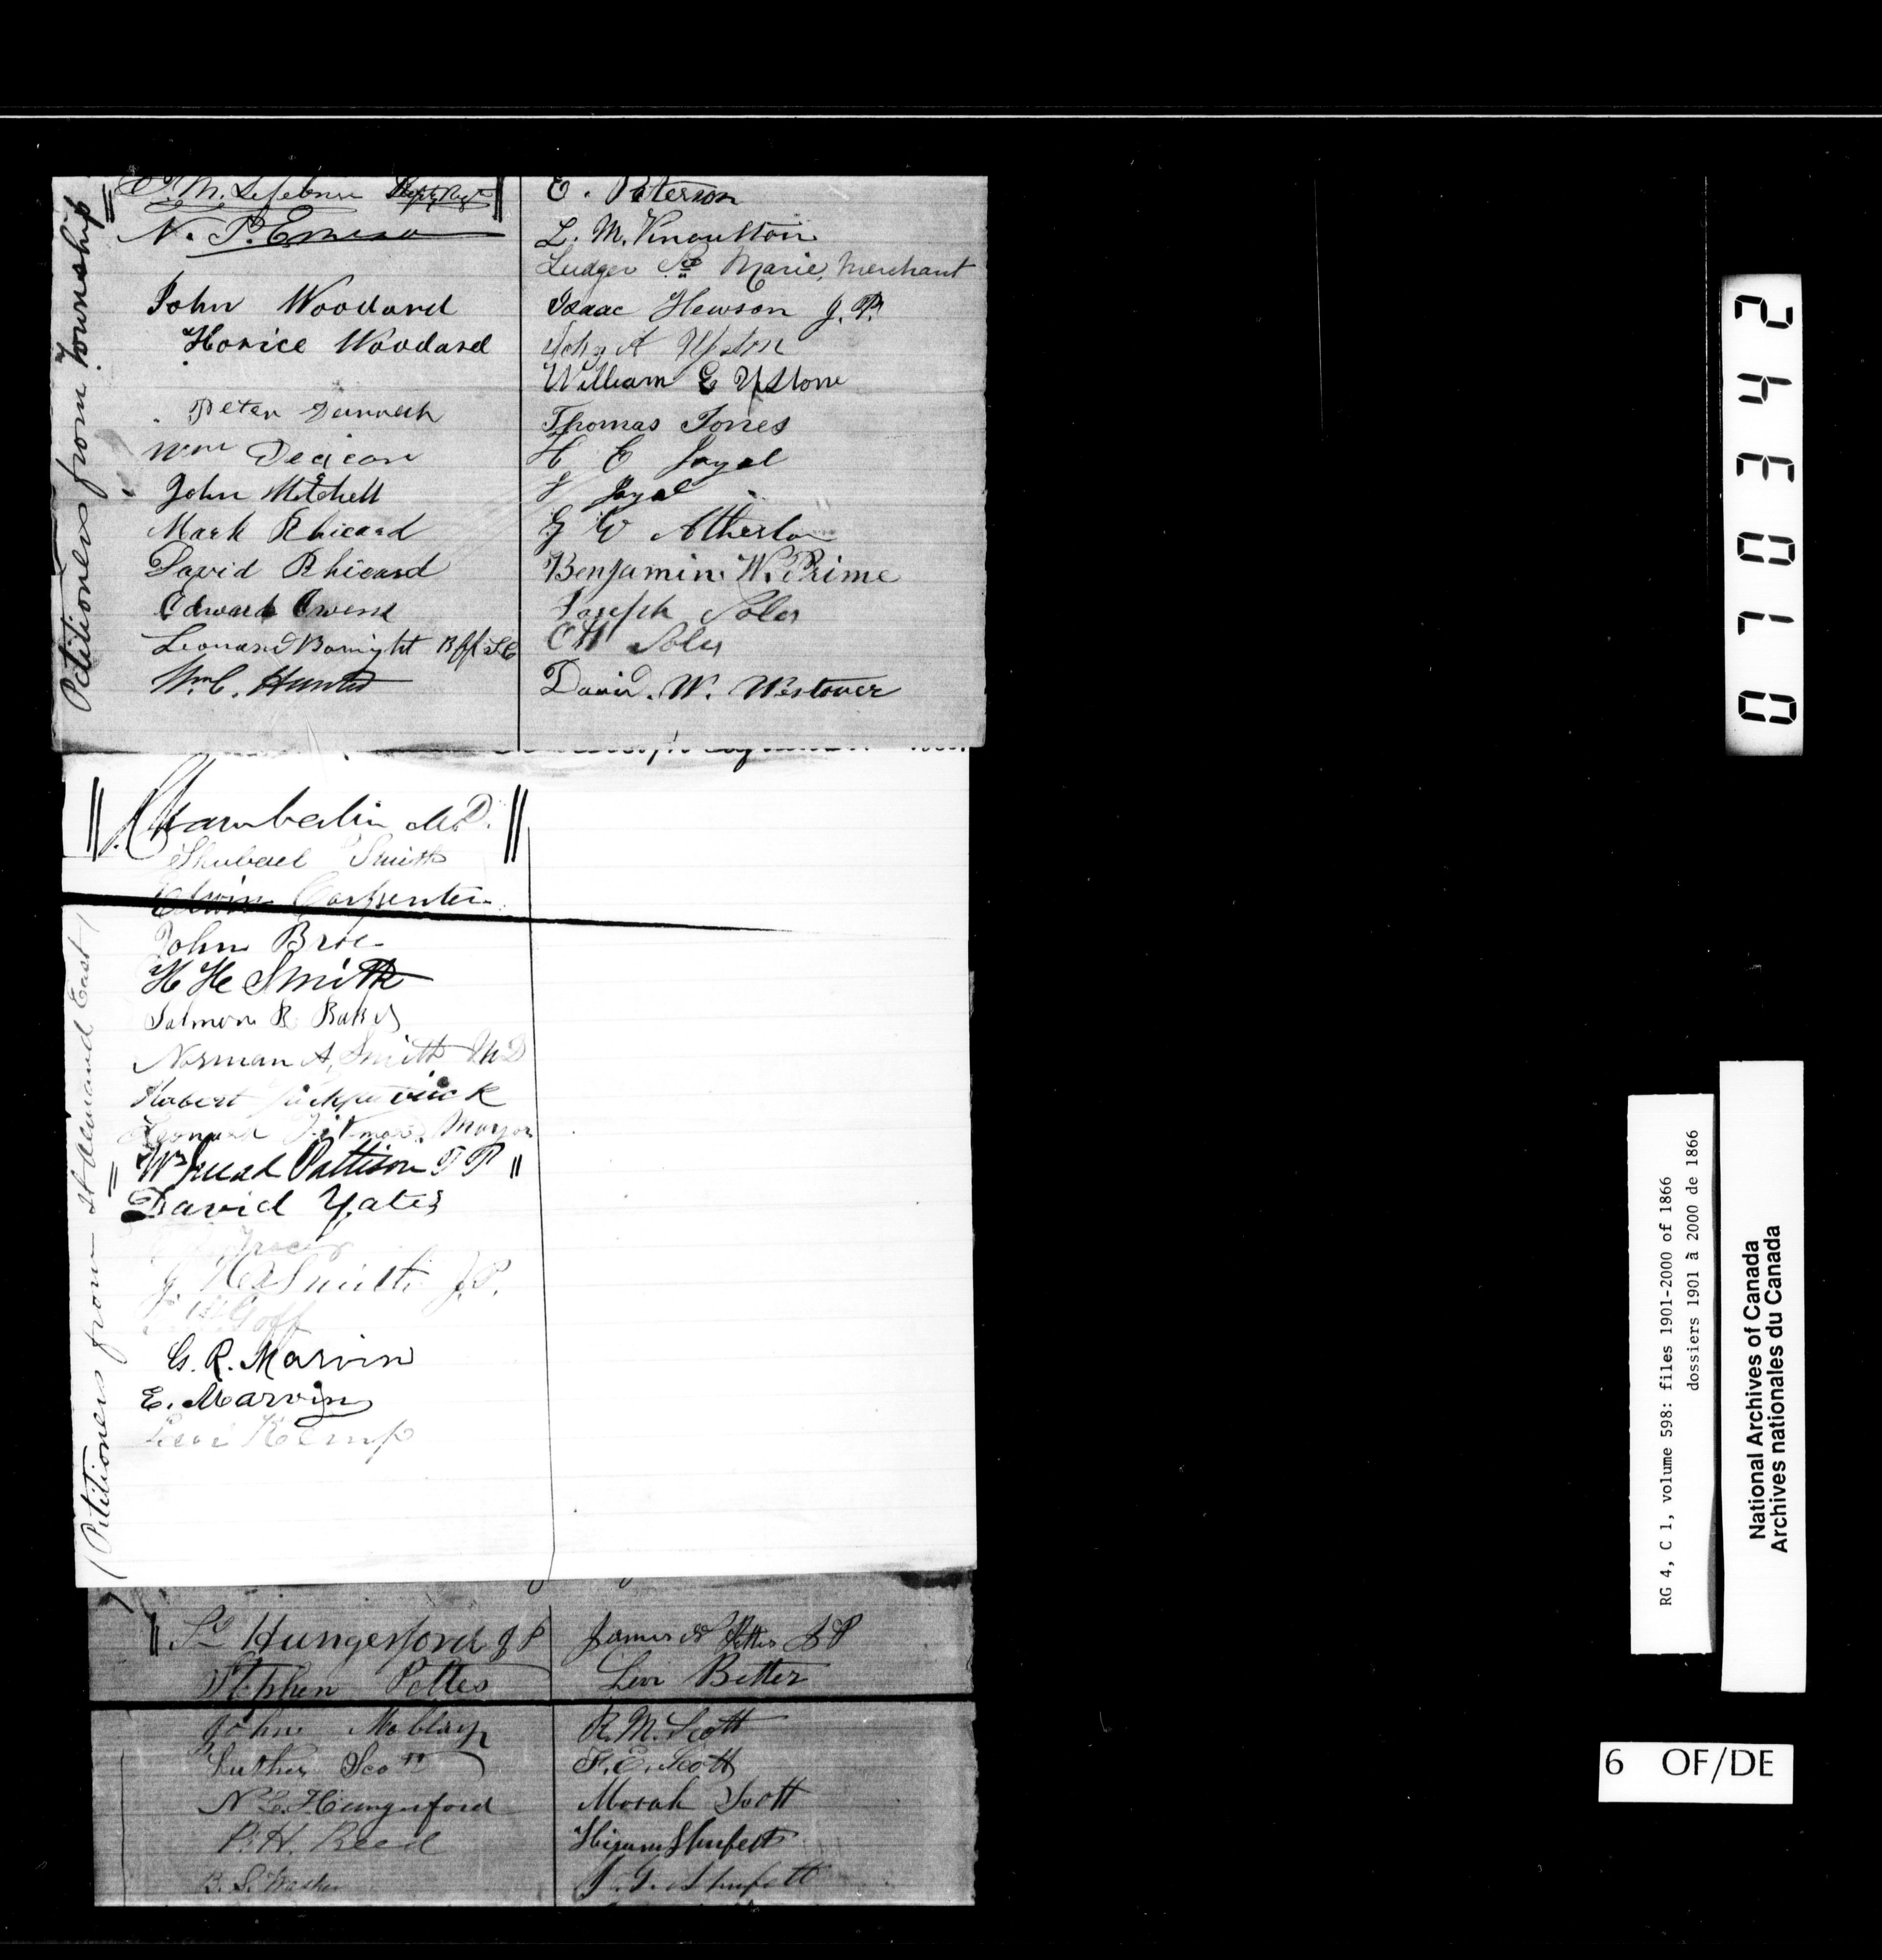 Petitioners from Township
N. P. Emerso
John Woodard
Horice Woodard
Peter
Wm Deacon
John Mitchell
Mark Rhicard
David Rhicard
Edward Owens
Leonard Boright
Wm C. Hunter
E. Peterson
L. M. Knoulton
Ludger Ste Marie, Merchant
Isaac Hewson J. P.
John A Upton
William E Upstone
Thomas Jones
H E Joyal
Joyal
G W Atherton
Benjamin W. Prime
Joseph Soles
C H Soles
David. W. Westover
Petitioners from St Armand East
Chamberlin M.D.
Shubael Smith
Edwin Carpenter
John Broe
H H Smith
Salmon R Baker
Norman A. Smith M D
Robert
Leonard Mayor
Pattison P P
David Yates
Tracey
Smith J.P.
Goff
G. R. Marvin
E. Marvin
Levi Kemp
Hungerford J P
Stephen Pettes
John
Luther Scott
N L. Hungerford
P. H. Reed
B. S.
James Pettes J P
Levi Better
R. M. Scott
F. E. Scott
Morah Scott
Hiram Shufelt
Shufelt
070342
RG 4, C 1, volume 598: files 1901-2000 of 1866
dossiers 1901 à 2000 de 1866
National Archives of Canada
Archives nationales du Canada
6 OF/DE